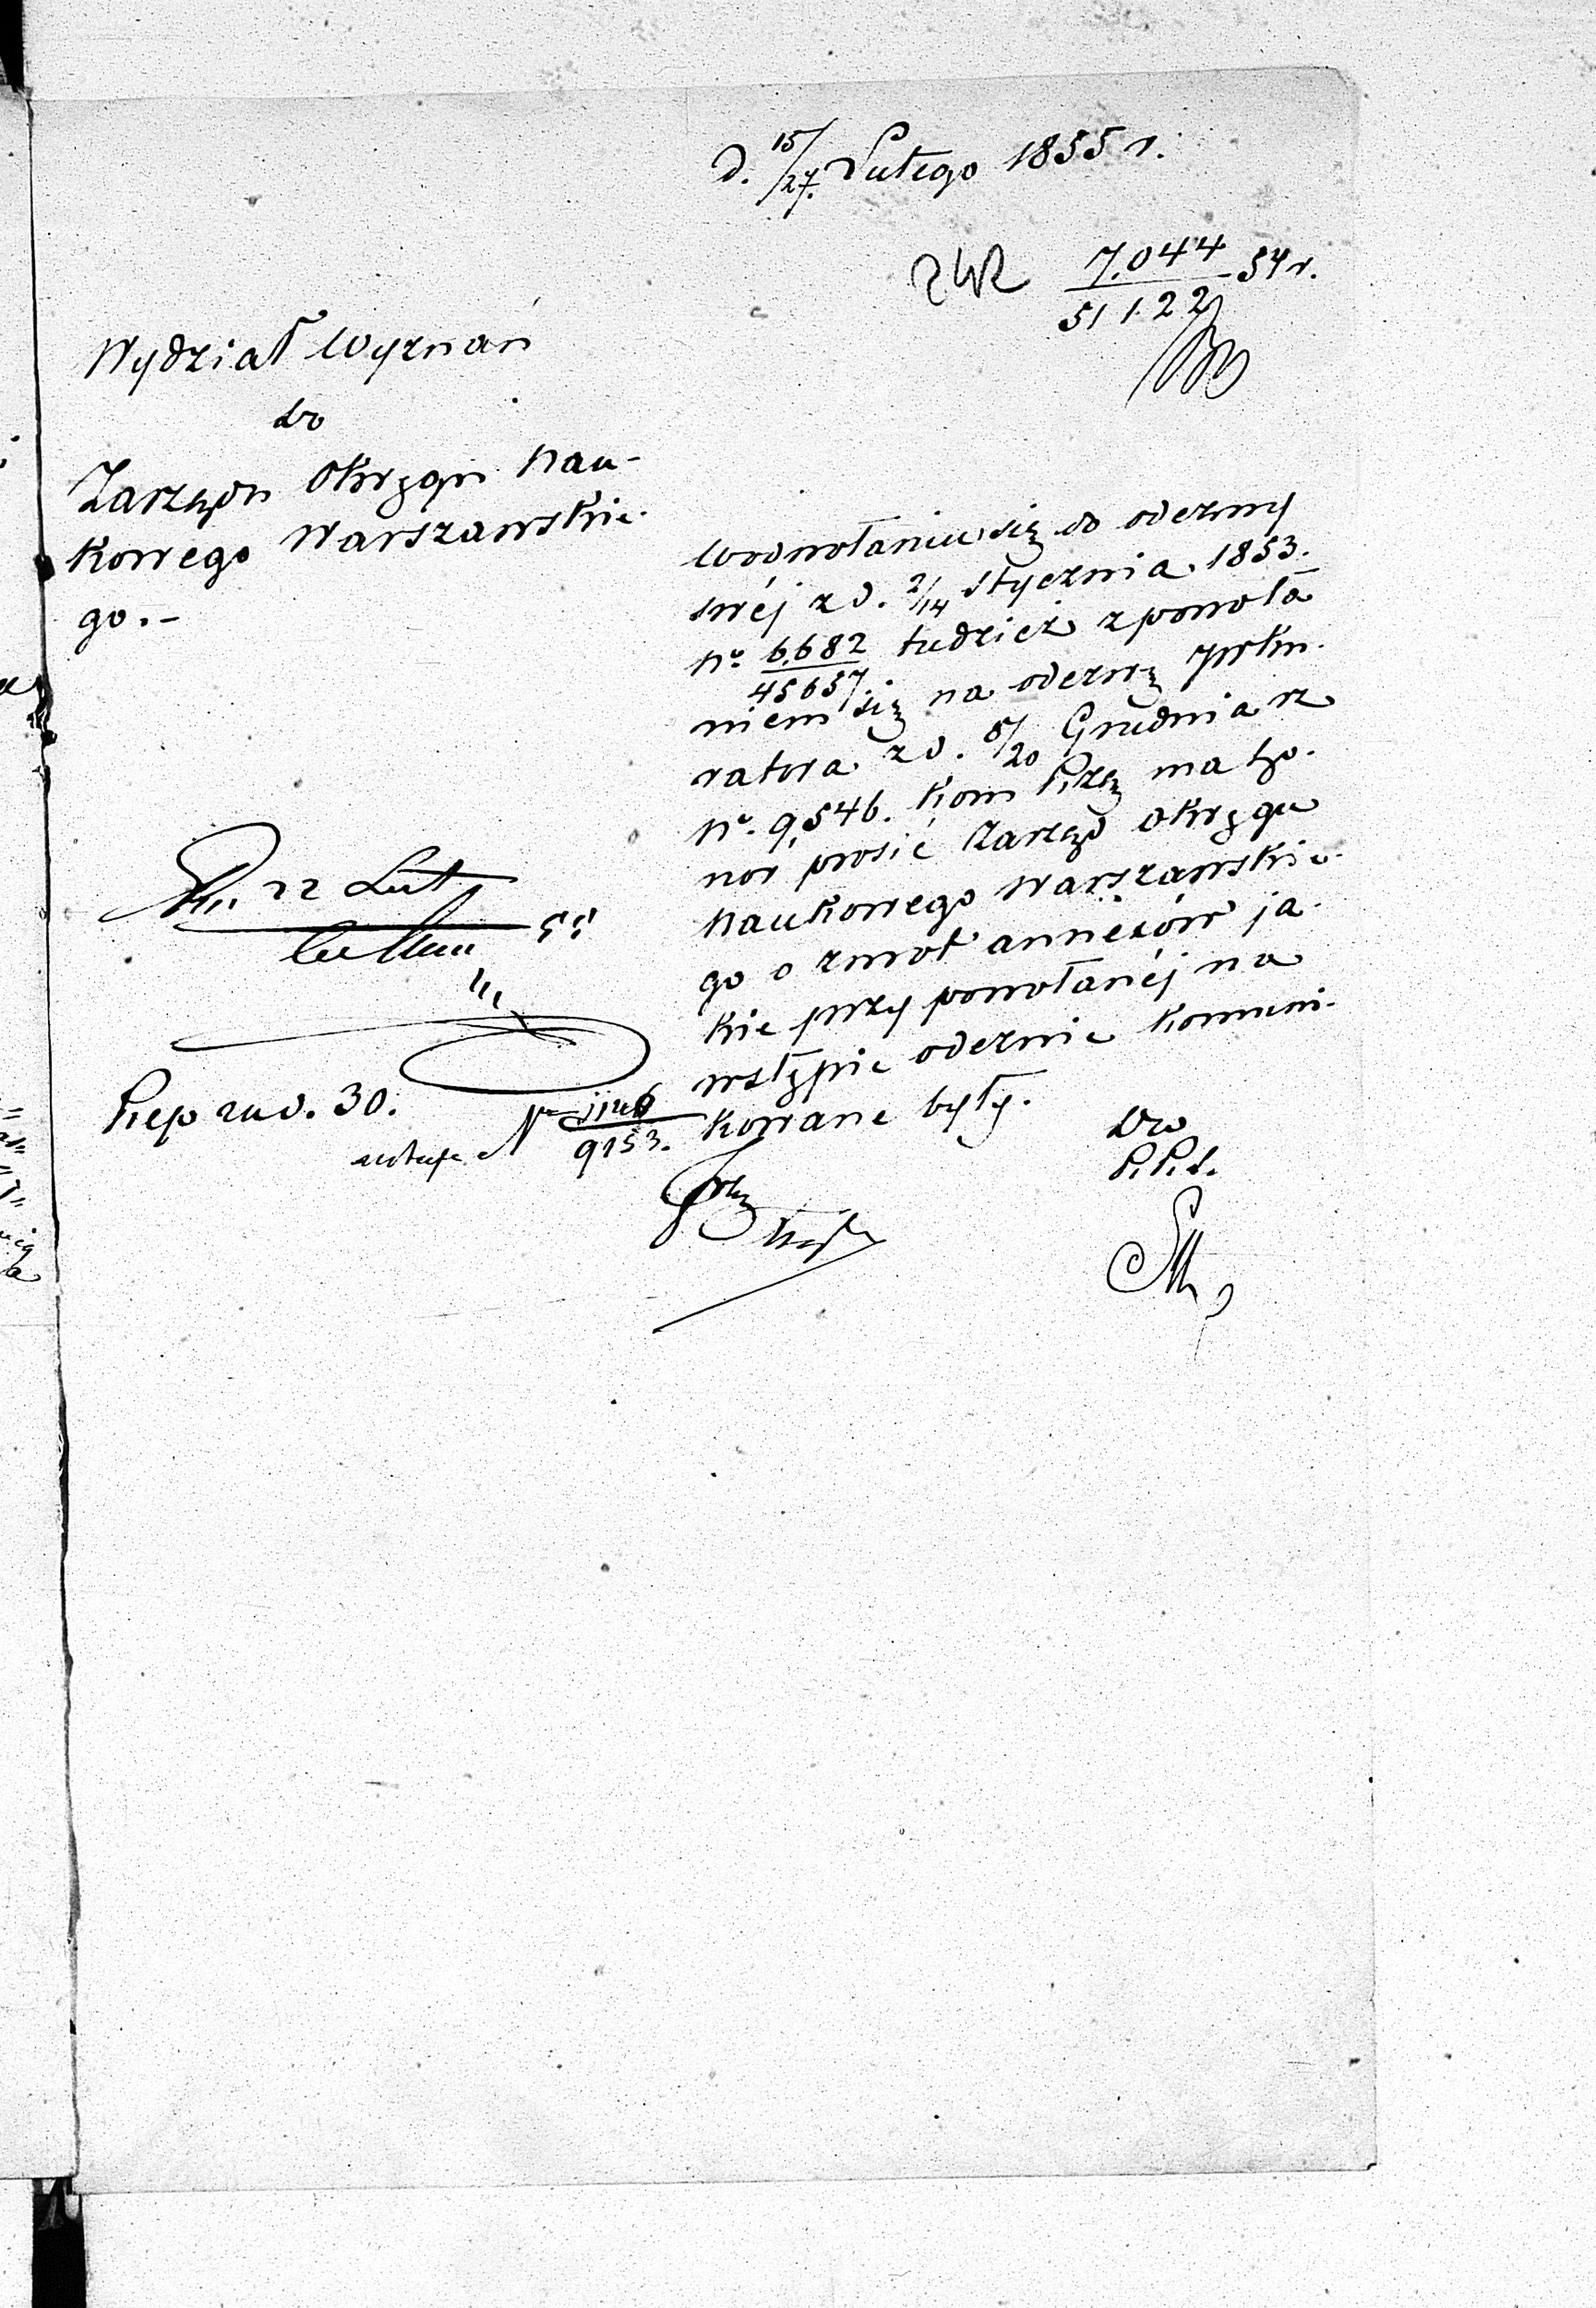 D. 15/27. Lutego 1855 r.
7.044/51122 54 r.
Wydział Wyznań
do
Zarządu Okręgu Nau-
kowego Warszawskie-
go.-
W odwołaniu się do odezwy
swéj z d. 2/14 Stycznia 1853.
No 6.682/45657 tudzież z powoła
niem się na odezwę Proku-
ratora z d. 8/20 Grudnia rz
No. 9,546. Kom Rzą ma ho-
nor prosić Zarząd Okręgu
Naukowego Warszawskie-
go o zwrot annexów ja-
kie przy powołanéj na
wstępie odezwie kommuni-
kowane były.
22 Lut
55
Rep 30.
No 9153.
Dw